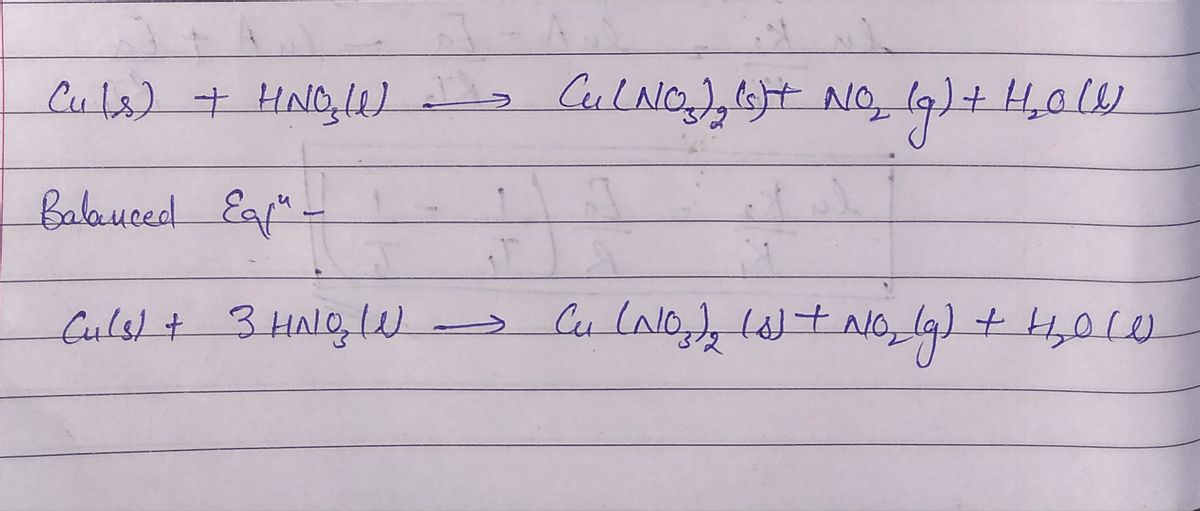 Cu(s) + HNO₃(l) → Cu(NO₃)₂(s) + NO₂(g) + H₂O(l)
Balanced Eqⁿ -
Cu(s) + 3HNO₃(l) → Cu(NO₃)₂(s) + NO₂(g) + H₂O(l)